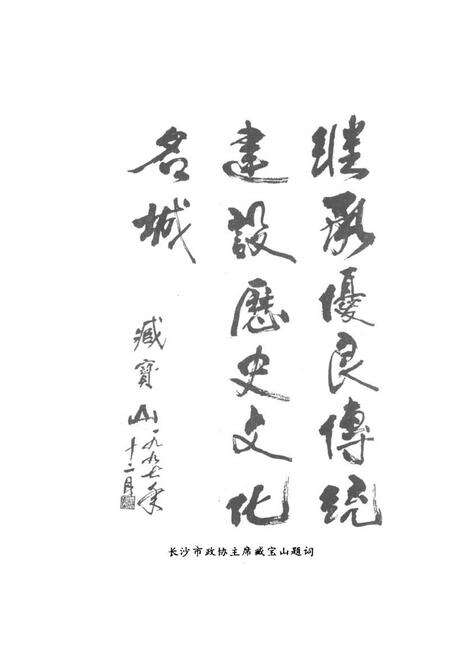 继承優良傳统
建設歷史文化
名城
臧寳山一九九七年
十二月
长沙市政协主席臧宝山题词